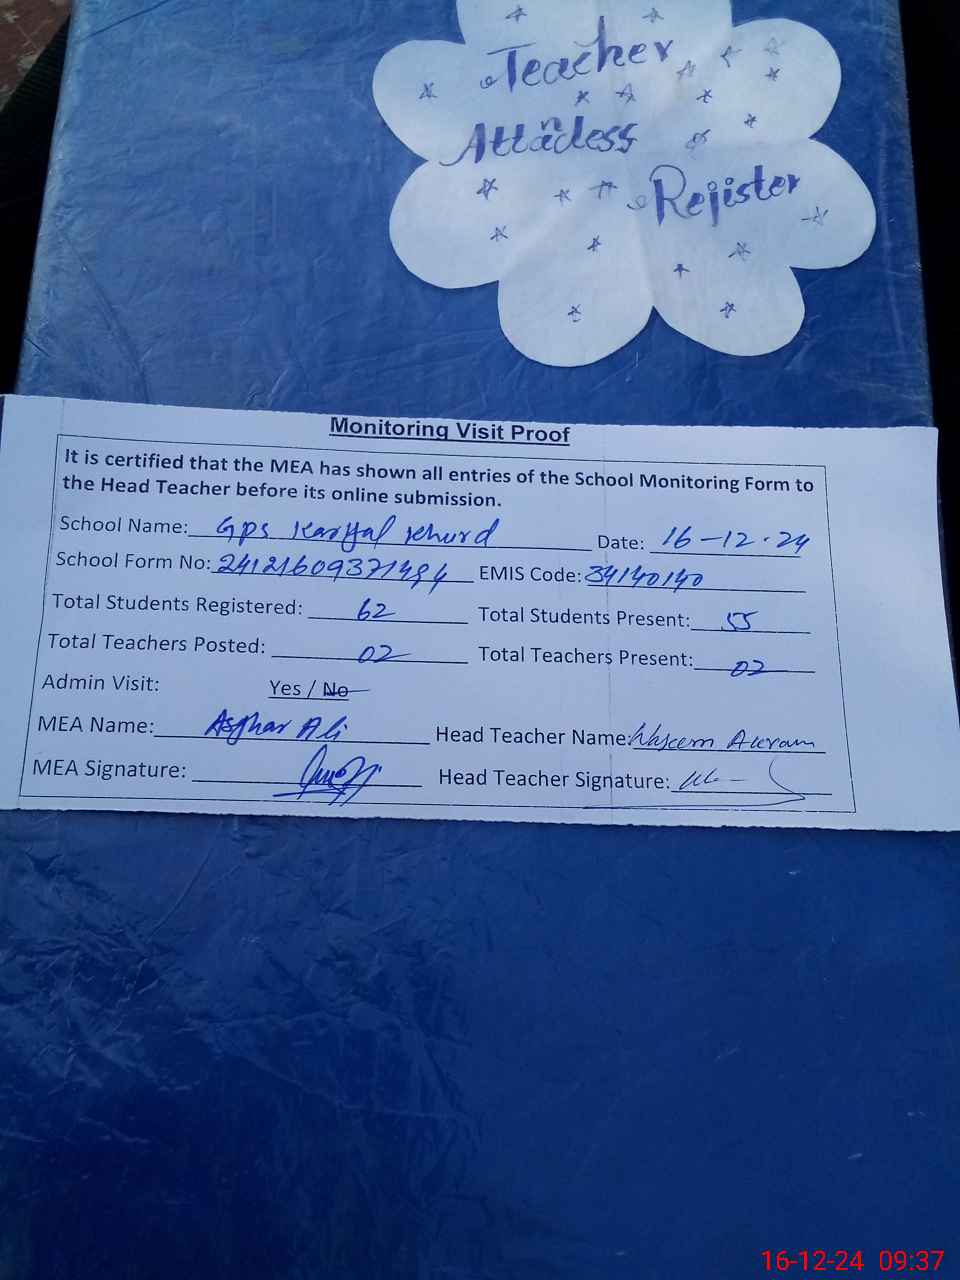 Teacher
Attandess
Rejister
Monitoring Visit Proof
It is certified that the MEA has shown all entries of the School Monitoring Form to
the Head Teacher before its online submission.
School Name: GPS Karyal Khurd Date: 16-12-24
School Form No: 24121609371494 EMIS Code: 34140140
Total Students Registered: 62 Total Students Present: 55
Total Teachers Posted: 02 Total Teachers Present: 02
Admin Visit: Yes / No
MEA Name: Asghar Ali Head Teacher Name: Waseem Akram
MEA Signature: Head Teacher Signature:
16-12-24 09:37